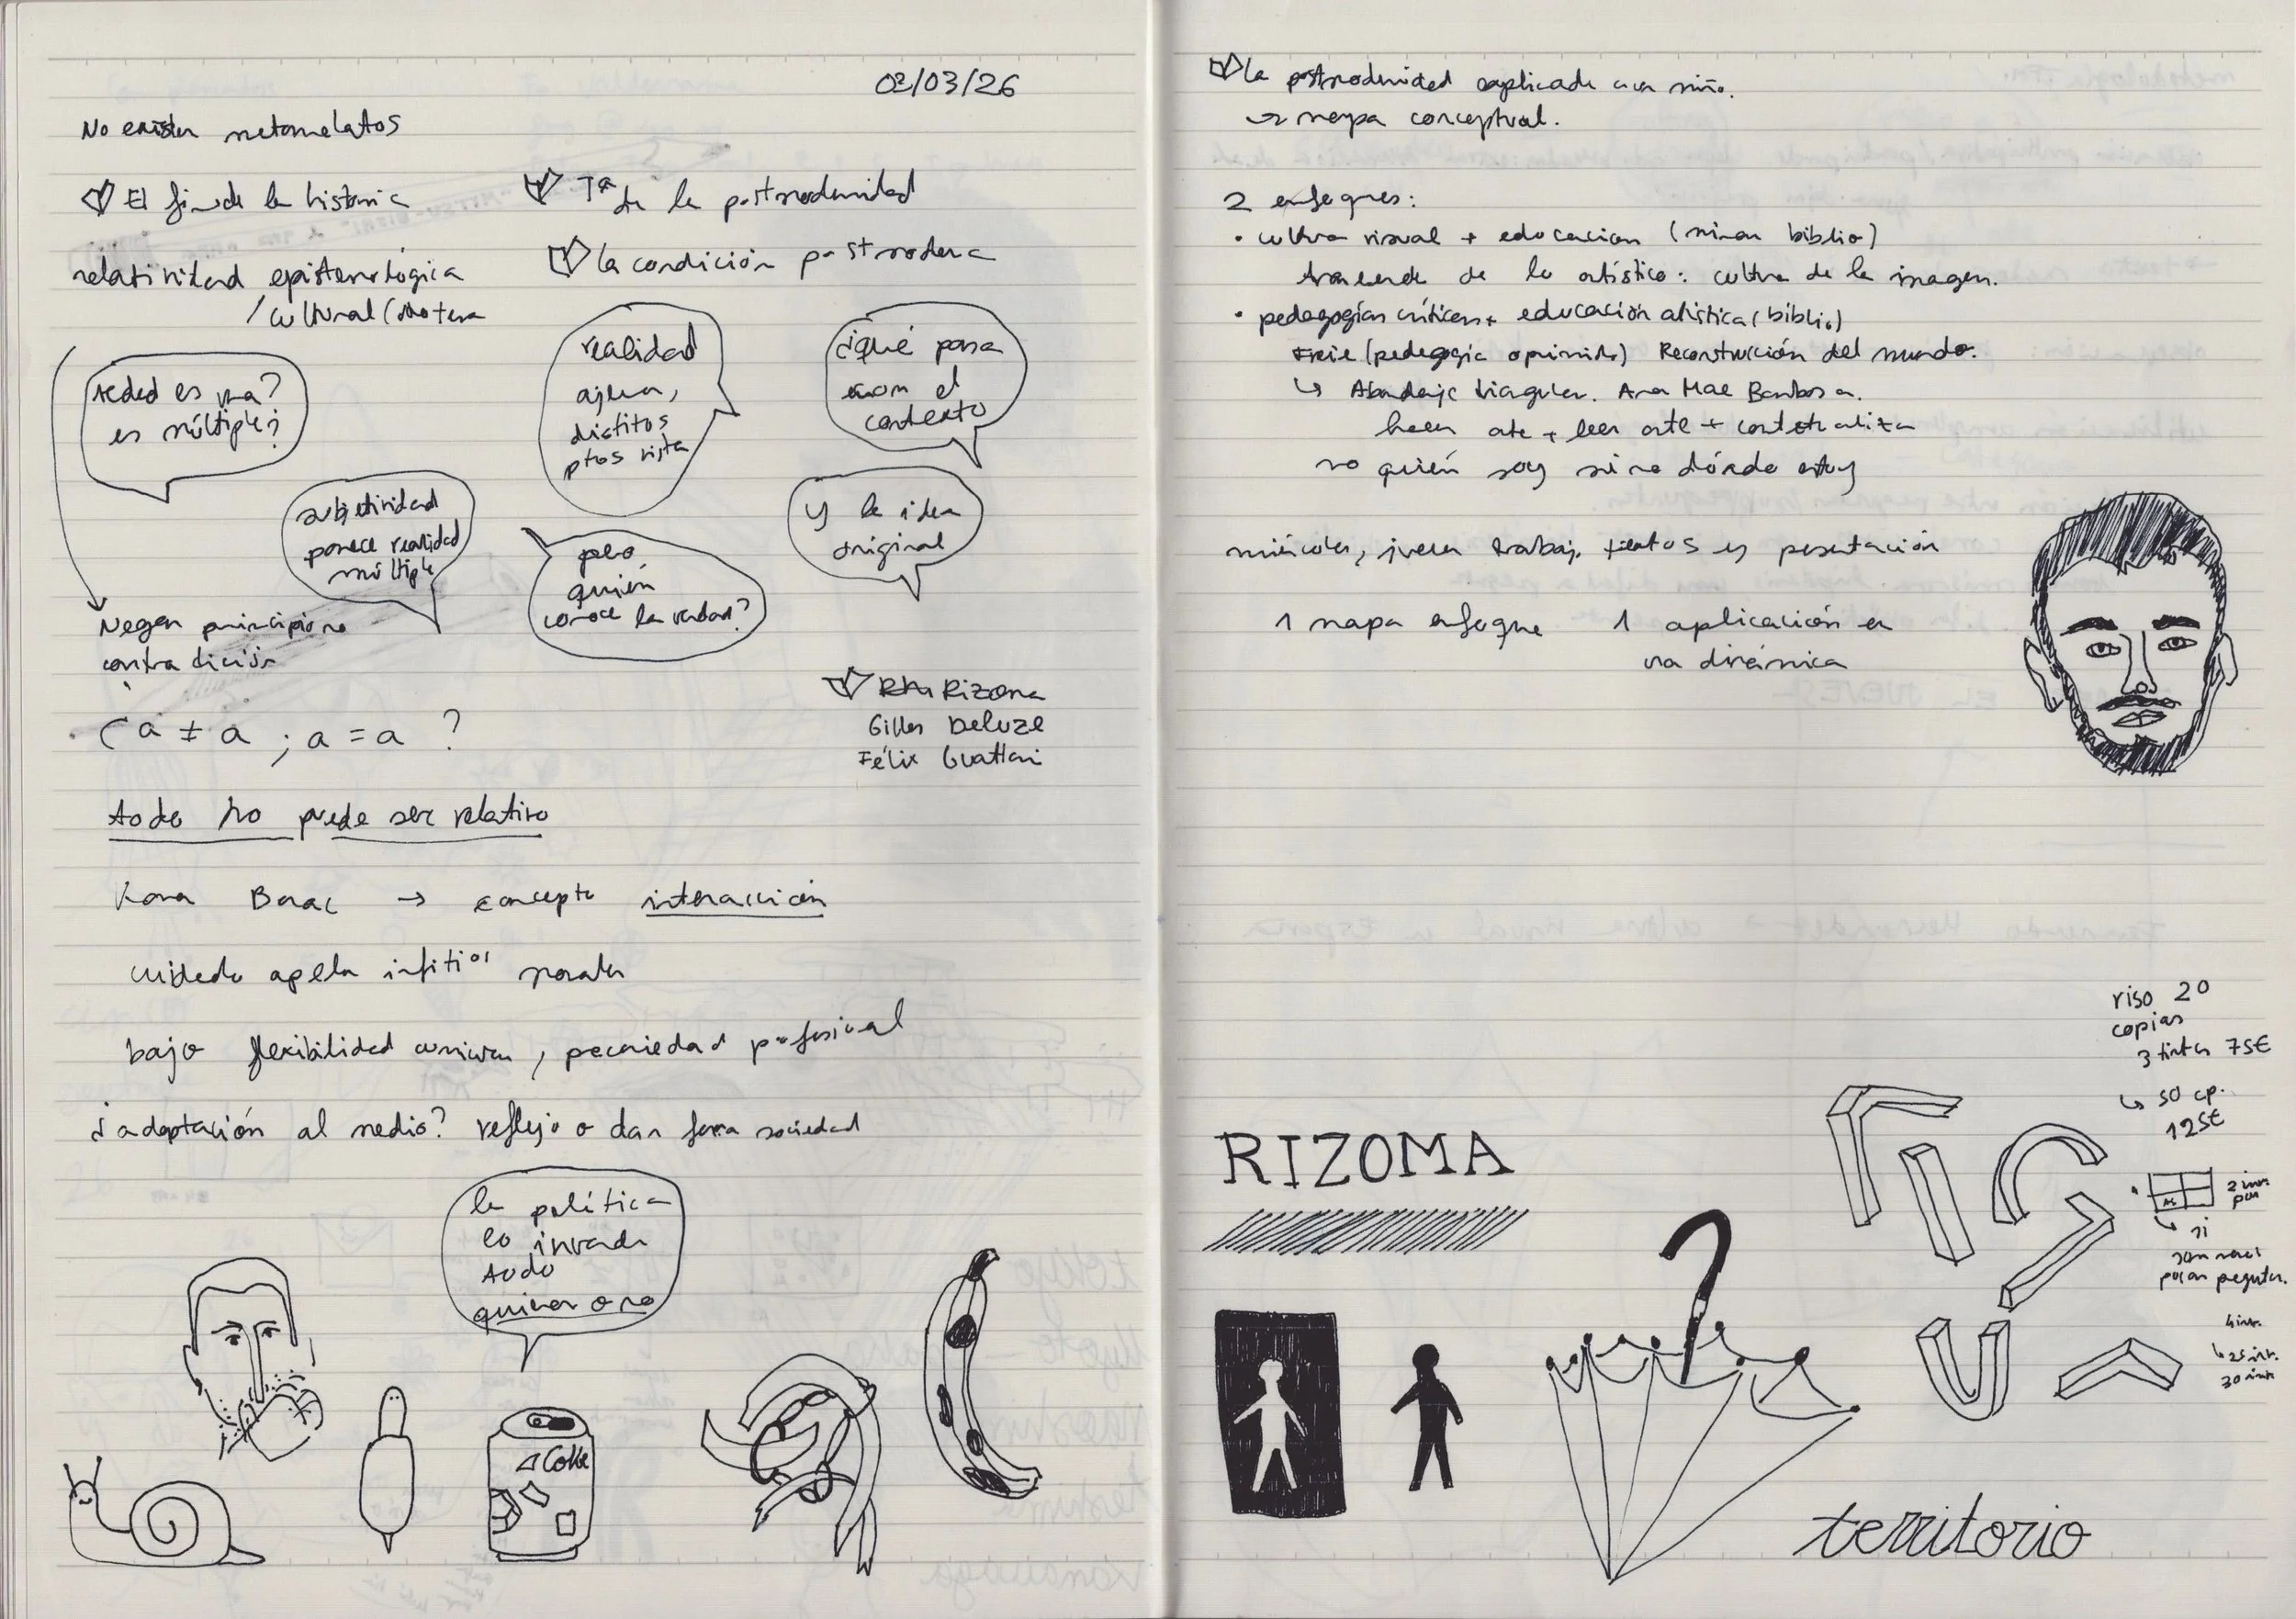 03/03/26
No existen metarrelatos
El fin de la historia
Tª de la postmodernidad
La condición postmoderna
relatividad epistemológica
/cultural (
es una?
es múltiple?
subjetividad
parece realidad
múltiple
realidad
ajena,
distitos
ptos vista
¿qué pasa
con el
contexto
y la idea
original
pero
quién
conoce la verdad?
Negan principio no
contradicción
(a ≠ a ; a = a ?
Rizoma
Gilles Deluze
Félix Guattari
todo no puede ser relativo
→ concepto interacción
cuidado apela
bajo flexibilidad , precariedad profesional
¿adaptación al medio? reflejo o dar forma sociedad
la política
lo invade
todo
quieras o no
Coke
La postmodernidad explicada a un niño.
→ mapa conceptual.
2 enfoques:
• cultura visual + educacion (mirar biblio)
trasciende de lo artístico: cultura de la imagen.
• pedagogías críticas + educación atística (biblio)
Freie (pedagogia oprimido) Reconstrucción del mundo.
↳ Abordaje triangular. Ana Mae Barbosa.
hacer arte + leer arte + contextualiza
no quién soy sino dónde estoy
miércoles, jueves trabajo textos y presentación
1 mapa enfoque 1 aplicación en
una dinámica
riso 20
copias
3 tintas 75€
↳ 50 cp.
125€
RIZOMA
si
territorio